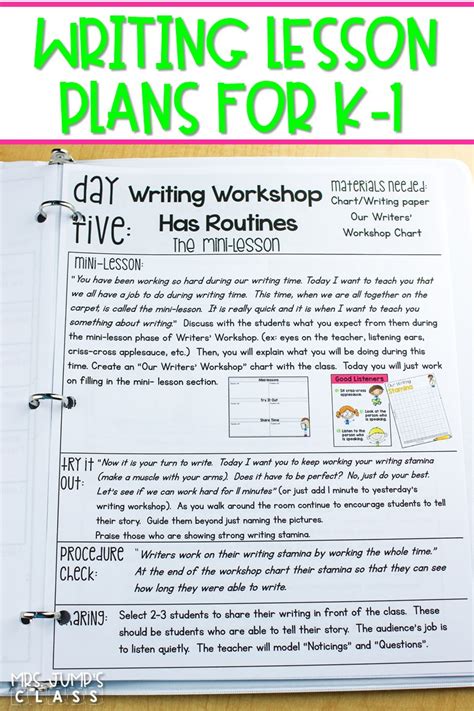 WRITING LESSON
PLANS FOR K-1
day
five:
Writing Workshop
Has Routines
The mini-Lesson
materials needed:
Chart/Writing paper
Our Writers'
Workshop Chart
mini-Lesson:
"You have been working so hard during our writing time. Today I want to teach you that
we all have a job to do during writing time. This time, when we are all together on the
carpet, is called the mini-lesson. It is really quick and it is when I want to teach you
something about writing." Discuss with the students what you expect from them during
the mini-lesson phase of Writers' Workshop. (ex: eyes on the teacher, listening ears,
criss-cross applesauce, etc.) Then, you will explain what you will be doing during this
time. Create an "Our Writers' Workshop" chart with the class. Today you will just work
on filling in the mini- lesson section.
Mini-lessons
Try it Out
Share
Good Listeners
Sit criss-cross
applesauce.
Look at the
person who
is speaking.
Listen to the
person who
is speaking.
Our Writing
Stamina
try it
out:
"Now it is your turn to write. Today I want you to keep working your writing stamina
(make a muscle with your arms). Does it have to be perfect? No, just do your best.
Let's see if we can work hard for 11 minutes" (or just add 1 minute to yesterday's
writing workshop). As you walk around the room continue to encourage students to
tell their story. Guide them beyond just naming the pictures.
Praise those who are showing strong writing stamina.
procedure
check:
"Writers work on their writing stamina by working the whole time."
At the end of the workshop chart their stamina so that they can see
how long they were able to write.
sharing:
Select 2-3 students to share their writing in front of the class. These
should be students who are able to tell their story. The audience's job is
to listen quietly. The teacher will model "Noticings" and "Questions".
MRS. JUMP'S
CLASS